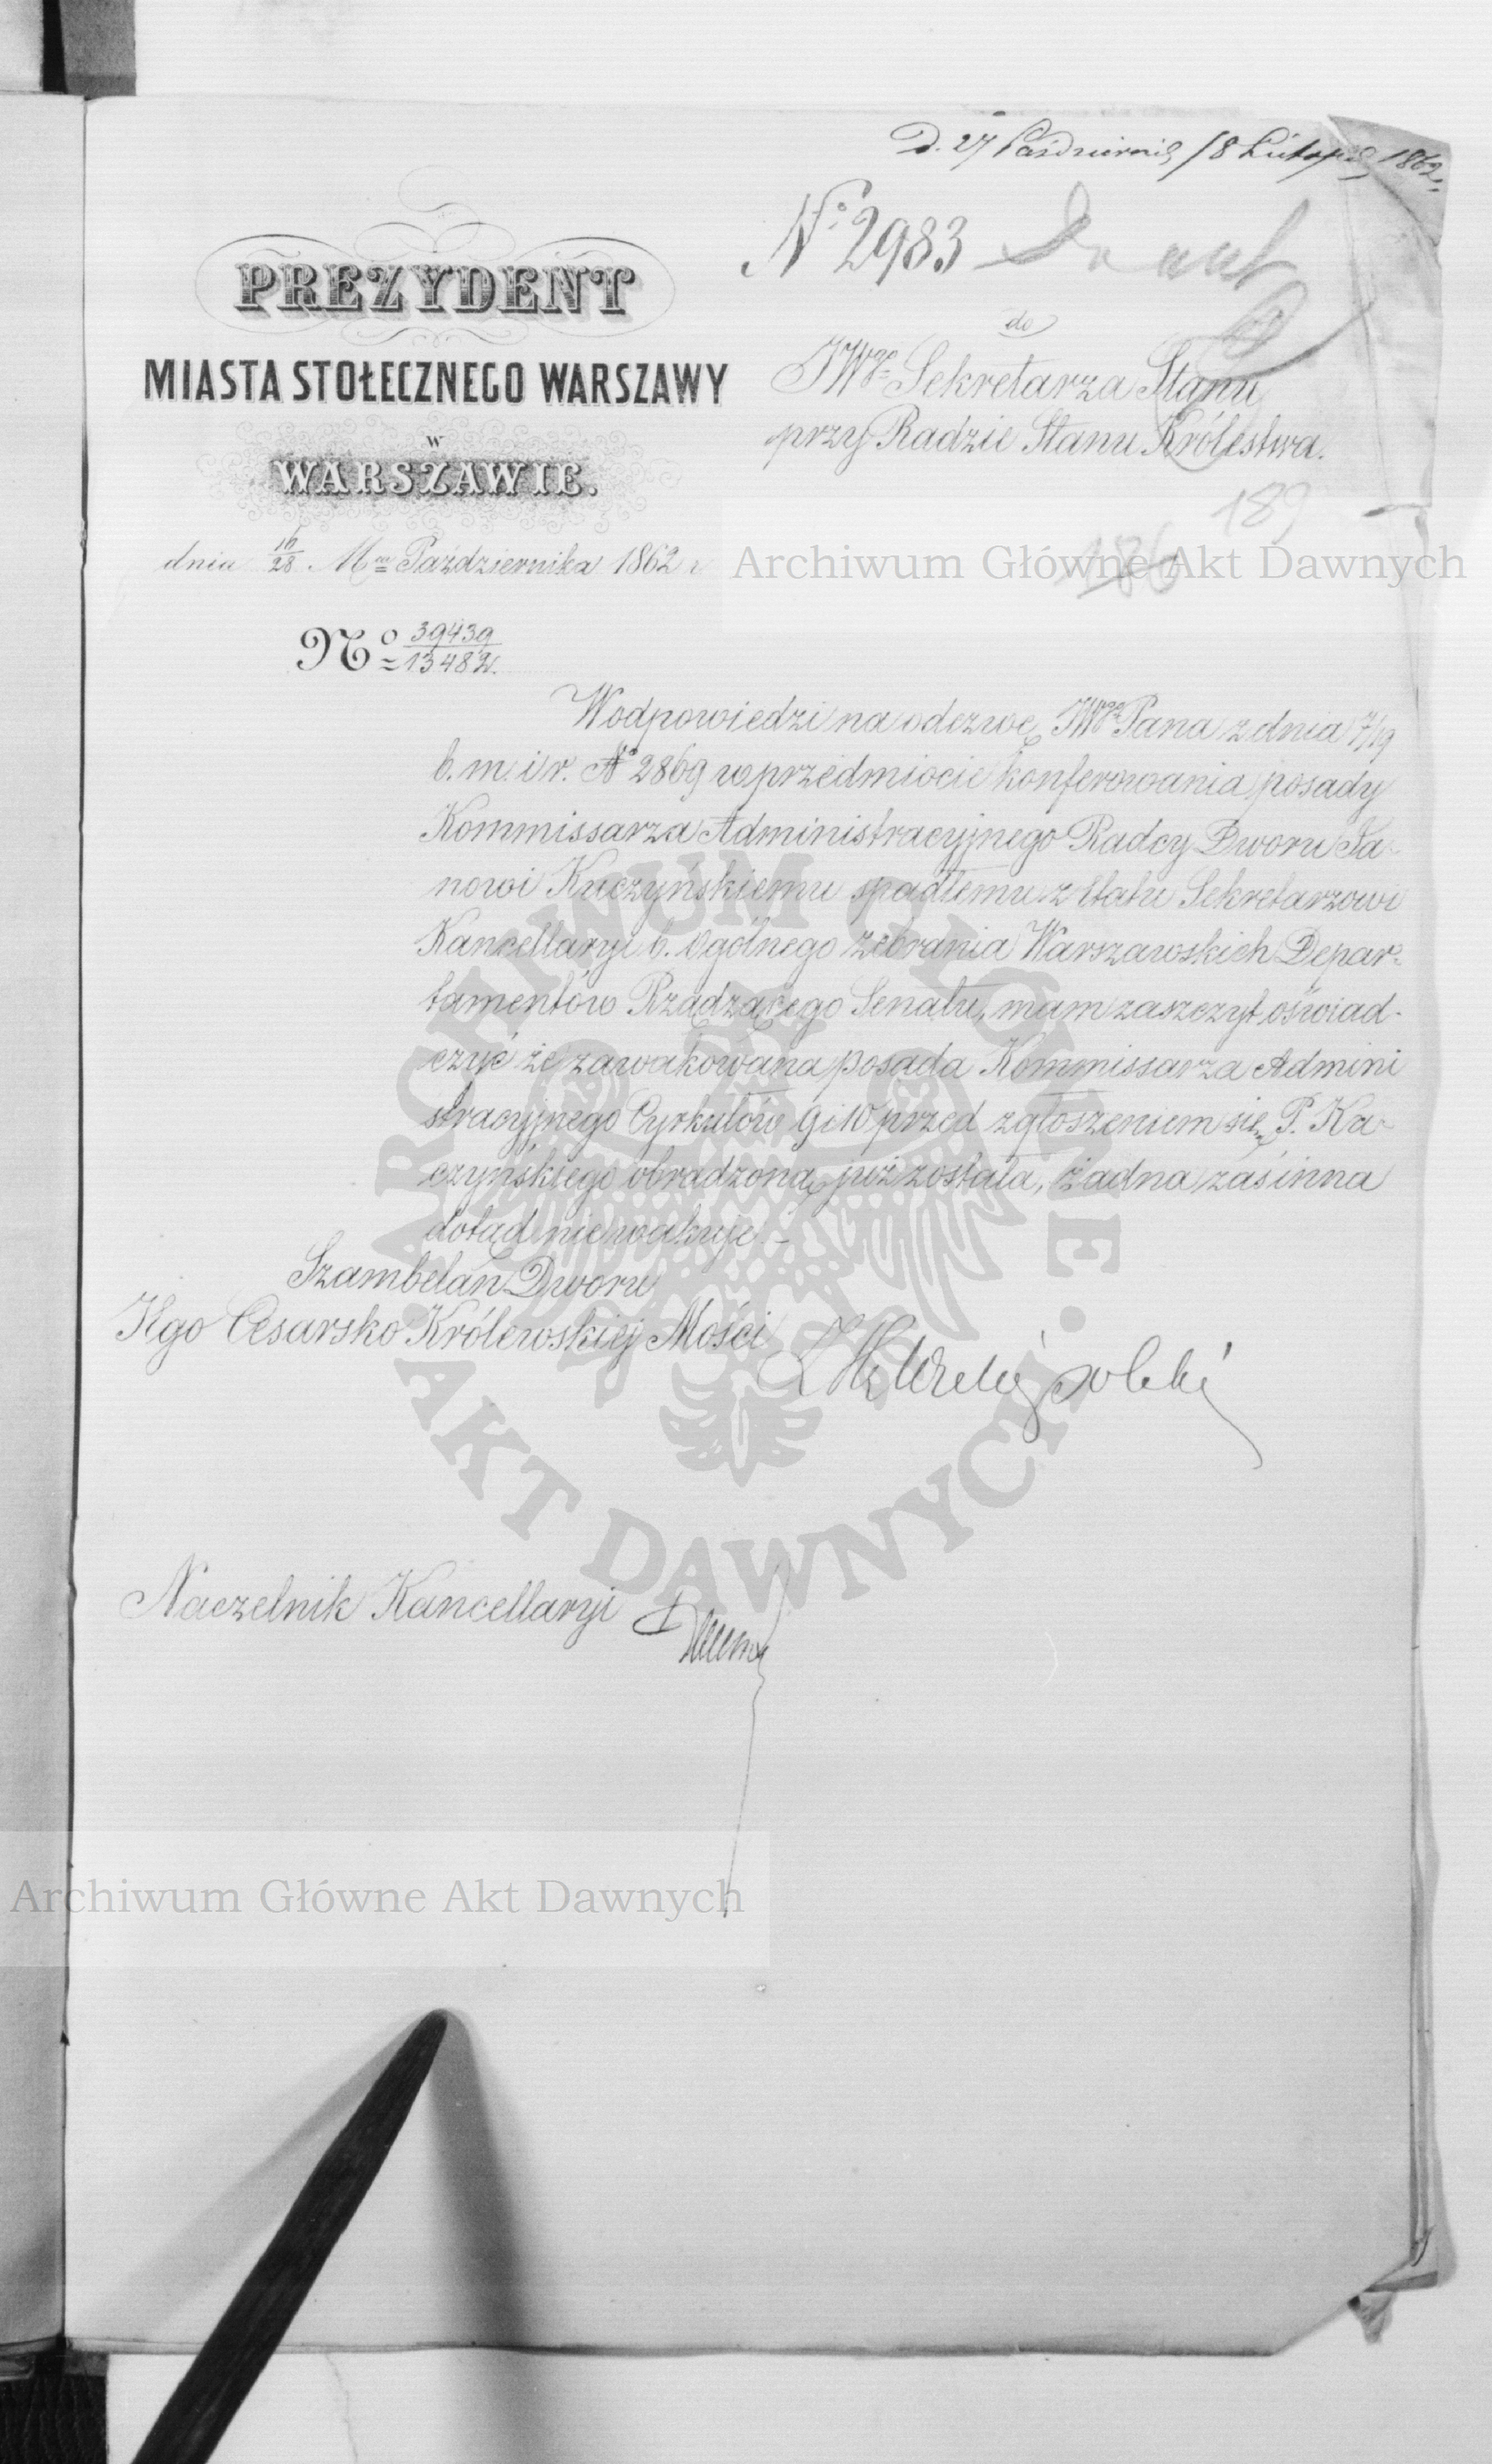 D. 27 Październik / 8 Listopad 1862.
Nº 2983
PREZYDENT
MIASTA STOŁECZNEGO WARSZAWY
W
WARSZAWIE.
do
JWgo Sekretarza Stanu
przy Radzie Stanu Królestwa.
189
186
dnia 16/28 Mca Października 1862 r
Nº 39439/13482.
W odpowiedzi na odezwę JWgo Pana z dnia 7/19
b. m. i r. Nº 2869 w przedmiocie konferowania posady
Kommissarza Administracyjnego Radcy Dworu Ja-
nowi Kuczyńskiemu spadłemu z etatu Sekretarzowi
Kancellaryi b. Ogólnego zebrania Warszawskich Depar-
tamentów Rządzącego Senatu, mam zaszczyt oświad-
czyć że zawakowana posada Kommissarza Admini
stracyjnego Cyrkułów 9 i 10 przed zgłoszeniem się P. Ka-
czyńskiego obradzoną już została, żadna zaś inna
dotąd nie wakuje.-
Szambelan Dworu
Jego Cesarsko Królewskiej Mości
Naczelnik Kancellaryi
Archiwum Główne Akt Dawnych
ARCHIWUM GŁÓWNE AKT DAWNYCH
Archiwum Główne Akt Dawnych